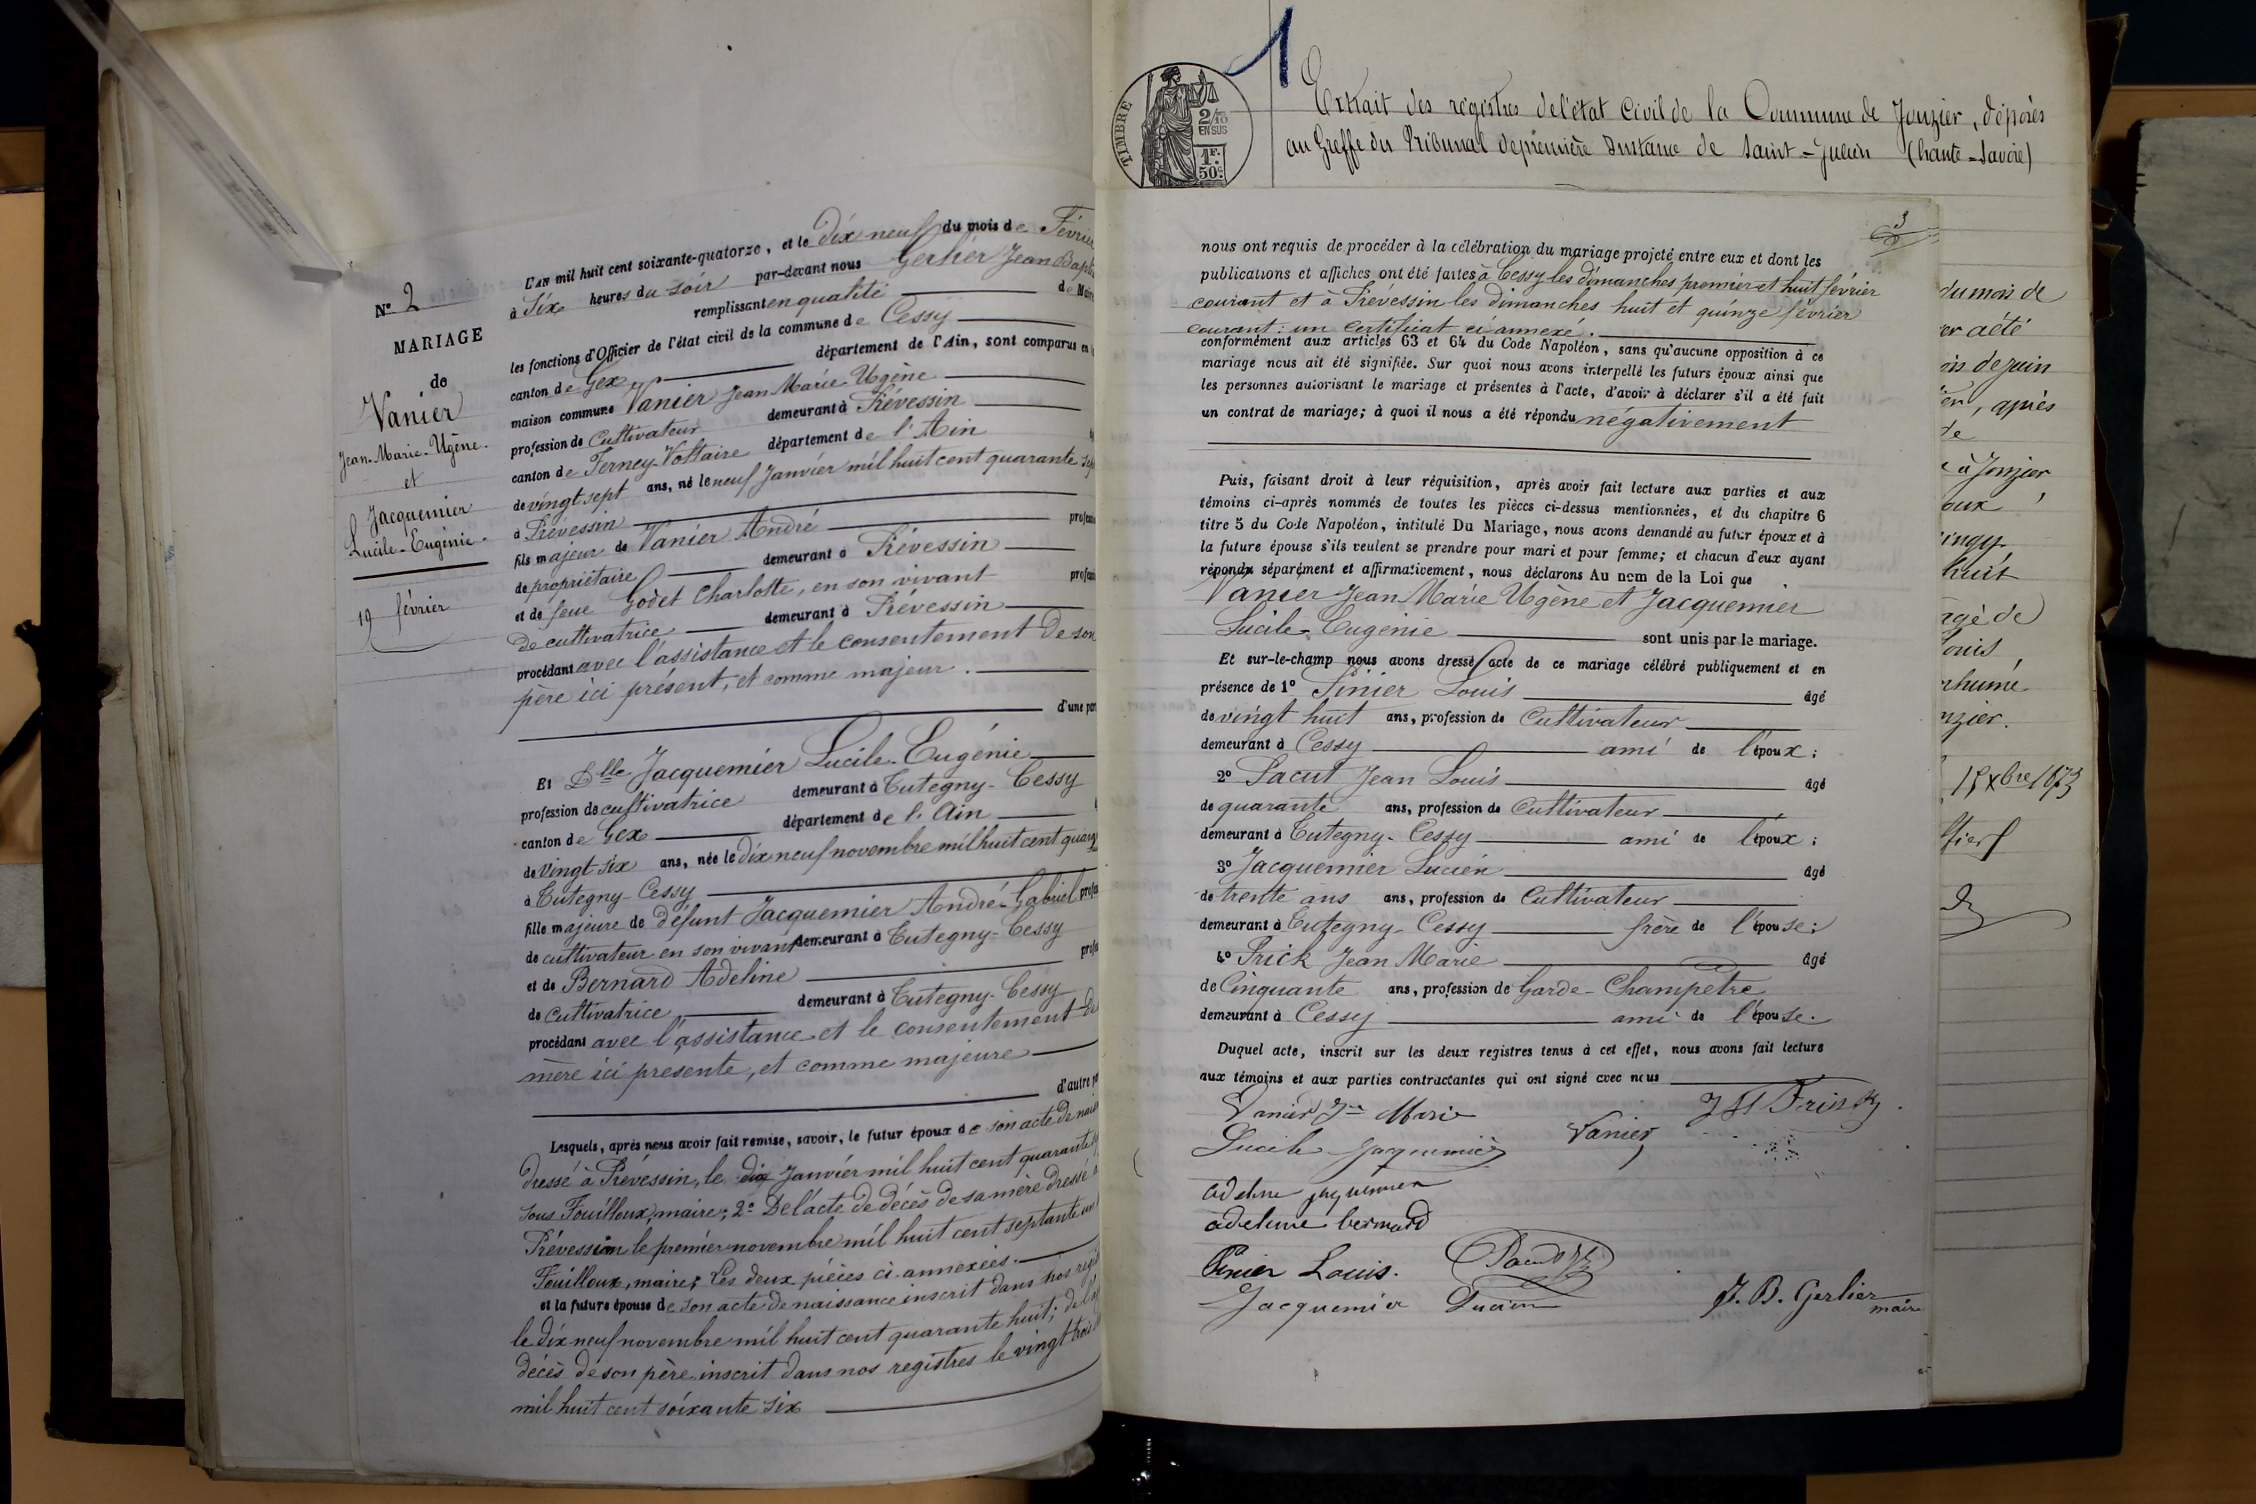 N° 2
MARIAGE
de
Vanier
Jean-Marie-Ugène.
et
Jacquemier
Lucile-Eugénie.
19 février
L'AN mil huit cent soixante-quatorze, et le dix neuf du mois de Févrie
à Six heures du soir par-devant nous Gerlier Jean Bapti
remplissant en qualité de Maire
les fonctions d'Officier de l'état civil de la commune de Cessy
canton de Gex département de l'Ain, sont comparus en
maison commune Vanier Jean Marie Ugène
profession de Cultivateur demeurant à Prévessin
canton de Ferney-Voltaire département de l'Ain
de vingt sept ans, né le neuf Janvier mil huit cent quarante sep
à Prévessin
fils majeur de Vanier André profess
de propriétaire demeurant à Prévessin
et de feue Godet Charlotte, en son vivant profess
de cultivatrice demeurant à Prévessin
procédant avec l'assistance et le consentement de son
père ici présent, et comme majeur.
d'une par
Et Dlle Jacquemier Lucile-Eugénie
profession de cultivatrice demeurant à Tutegny-Cessy
canton de Gex département de l'Ain
de vingt six ans, née le dix neuf novembre mil huit cent quara
à Tutegny-Cessy
fille majeure de défunt Jacquemier André-Gabriel profes
de cultivateur en son vivant demeurant à Tutegny-Cessy
et de Bernard Adeline profes
de cultivatrice demeurant à Tutegny-Cessy
procédant avec l'assistance et le consentement de
mère ici présente, et comme majeure
d'autre par
Lesquels, après nous avoir fait remise, savoir, le futur époux de son acte de nais
dressé à Prévessin, le dix Janvier mil huit cent quarante
sous Fouilloux, maire; 2° De l'acte de décès de sa mère dressé
Prévessin le premier novembre mil huit cent septante
Fouilloux, maire; Les deux pièces ci-annexées.
et la future épouse de son acte de naissance inscrit dans nos regis
le dix neuf novembre mil huit cent quarante huit; de l'
décès de son père inscrit dans nos registres le vingt trois
mil huit cent soixante six
1
TIMBRE
2/10
EN SUS
1F.
50c.
Extrait des registres de l'état civil de la Commune de Jonzier, déposés
au Greffe du Tribunal de première Instance de Saint-Julien (haute-Savoie)
3
nous ont requis de procéder à la célébration du mariage projeté entre eux et dont les
publications et affiches ont été faites à Cessy les dimanches premier et huit février
courant et à Prévessin les dimanches huit et quinze février
courant: un certificat ci annexé.
conformément aux articles 63 et 64 du Code Napoléon, sans qu'aucune opposition à ce
mariage nous ait été signifiée. Sur quoi nous avons interpellé les futurs époux ainsi que
les personnes autorisant le mariage et présentes à l'acte, d'avoir à déclarer s'il a été fait
un contrat de mariage; à quoi il nous a été répondu négativement
Puis, faisant droit à leur réquisition, après avoir fait lecture aux parties et aux
témoins ci-après nommés de toutes les pièces ci-dessus mentionnées, et du chapitre 6
titre 5 du Code Napoléon, intitulé Du Mariage, nous avons demandé au futur époux et à
la future épouse s'ils veulent se prendre pour mari et pour femme; et chacun d'eux ayant
répondu séparément et affirmativement, nous déclarons Au nom de la Loi que
Vanier Jean Marie Ugène et Jacquemier
Lucile-Eugénie sont unis par le mariage.
Et sur-le-champ nous avons dressé acte de ce mariage célébré publiquement et en
présence de 1° Pinier Louis âgé
de vingt huit ans, profession de Cultivateur
demeurant à Cessy ami de l'époux;
2° Pacut Jean Louis âgé
de quarante ans, profession de Cultivateur
demeurant à Tutegny-Cessy ami de l'époux;
3° Jacquemier Lucien âgé
de trente ans ans, profession de Cultivateur
demeurant à Tutegny-Cessy frère de l'épouse;
4° Frick Jean Marie âgé
de Cinquante ans, profession de Garde-Champêtre
demeurant à Cessy ami de l'épouse.
Duquel acte, inscrit sur les deux registres tenus à cet effet, nous avons fait lecture
aux témoins et aux parties contractantes qui ont signé avec nous
Vanier Jn Marie
Lucile Jacquemier Vanier
adeline
adeline bernard
Pinier Louis.
Jacquemier Lucien J. B. Gerlier
maire
du mois de
er a été
ois de juin
après
de
à Jonzier
oux
huit
âgé de
ouis
nzier.
15 Xbre 1873